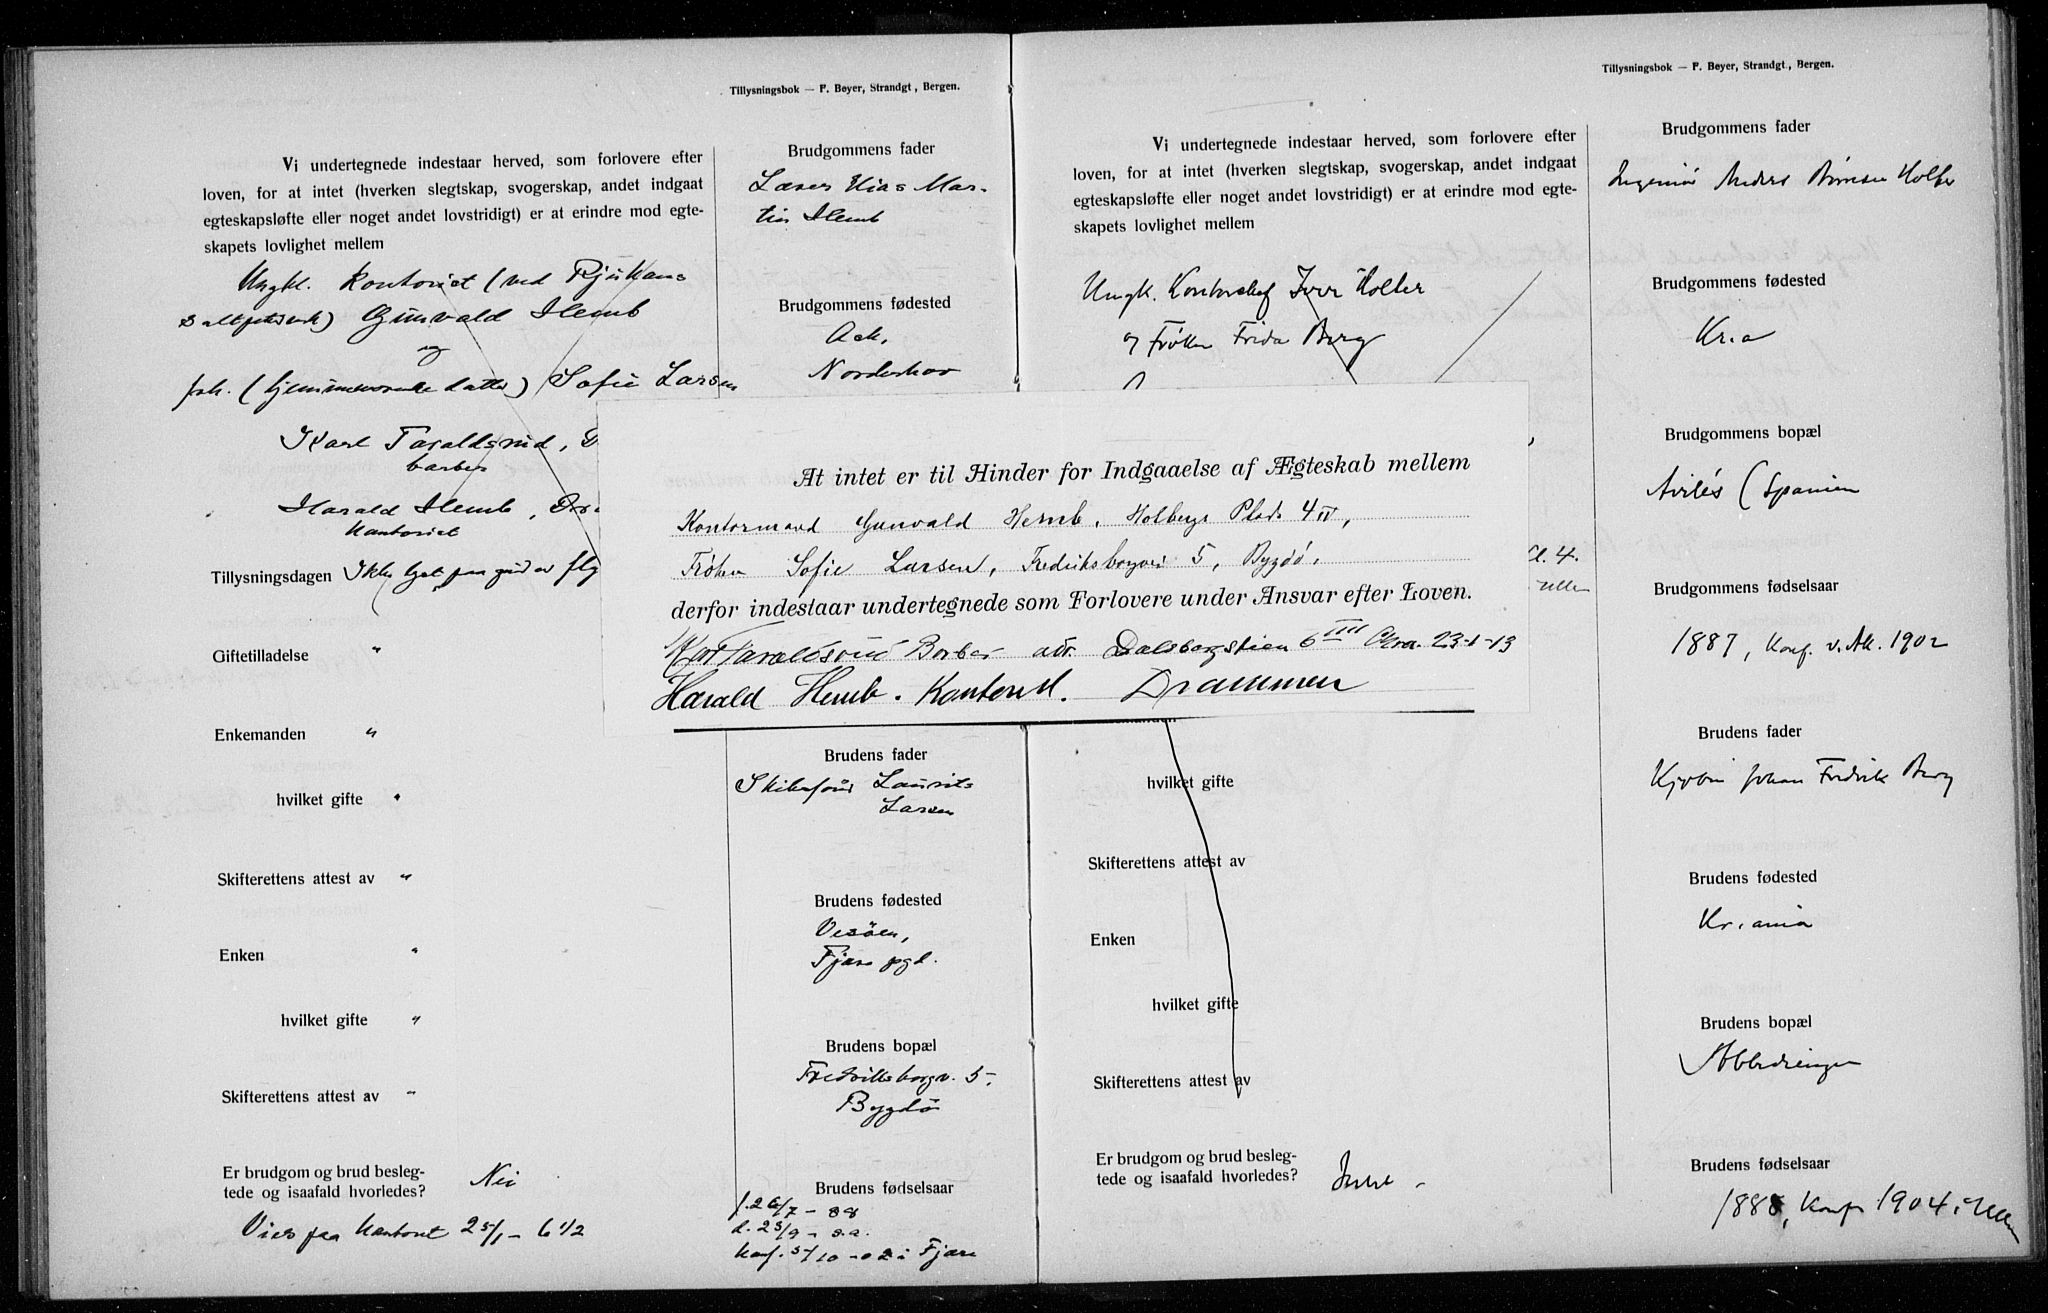 Tillysningsbok — F. Beyer, Strandgt, Bergen.
Vi undertegnede indestaar herved, som forlovere efter
loven, for at intet (hverken slegtskap, svogerskap, andet indgaat
egteskapsløfte eller noget andet lovstridigt) er at erindre mod egte-
skapets lovlighet mellem
Ungkl. kontorist (ved Rjukans
Gunvald Hemb
og
frk. (hjemmeværende datter) Sofie Larsen
Karl Taraldsrud,
barber
Harald Hemb,
Kontorist
Tillysningsdagen Ikke lyst paa
Giftetilladelse "
Enkemanden "
hvilket gifte "
Skifterettens attest av "
Enken "
hvilket gifte "
Skifterettens attest av "
Er brudgom og brud besleg-
tede og isaafald hvorledes? Nei
Vies paa kontoret 25/1 - 6 1/2
Brudgommens fader
Elias Mar-
tin Hemb
Brudgommens fødested
Ask,
Norderhov
Brudens fader
Laurits
Larsen
Brudens fødested
Vesøen,
Fjære pgd.
Brudens bopæl
Fredriksborgv. 5,
Bygdø
Brudens fødselsaar
f. 26/7 - 88
d. 23/9 - s.a.
konf. 5/10 - 02 i Fjære
At intet er til Hinder for Indgaaelse af Ægteskab mellem
Kontormand Gunvald Hemb, Holbergs Plads 4 IV,
Frøken Sofie Larsen, Fredriksborgvei 5, Bygdø,
derfor indestaar undertegnede som Forlovere under Ansvar efter Loven.
Karl Taraldsrud Barber adr. Dalsbergstien 6 III Chra. 23-1-13
Harald Hemb. Kontorist. Drammen
Tillysningsbok — F. Beyer, Strandgt., Bergen.
Vi undertegnede indestaar herved, som forlovere efter
loven, for at intet (hverken slegtskap, svogerskap, andet indgaat
egteskapsløfte eller noget andet lovstridigt) er at erindre mod egte-
skapets lovlighet mellem
Ungk. Kontorchef Iver Holter
og Frøken Frida Berg
hvilket gifte
Skifterettens attest av
Enken
hvilket gifte
Skifterettens attest av
Er brudgom og brud besleg-
tede og isaafald hvorledes?
Brudgommens fader
Ingeniør Anders Holter
Brudgommens fødested
Kr.a
Brudgommens bopæl
Avilés (Spanien
Brudgommens fødselsaar
1887, Konf. v. Ak. 1902
Brudens fader
Johan Fredrik Berg
Brudens fødested
Kr.ania
Brudens bopæl
Abbediengen
Brudens fødselsaar
1888, Konf. 1904 i Ullern